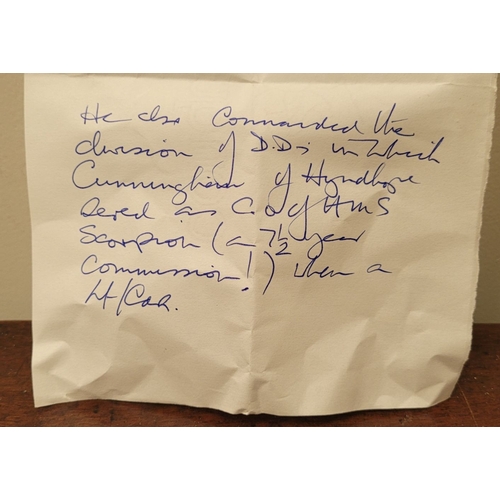 He also commanded the
division of D.Ds in which
Cunningham of Hyndhope
served as C.O of HMS
Scorpion (a 7½ year
commission!) when a
Lt/Cdr.